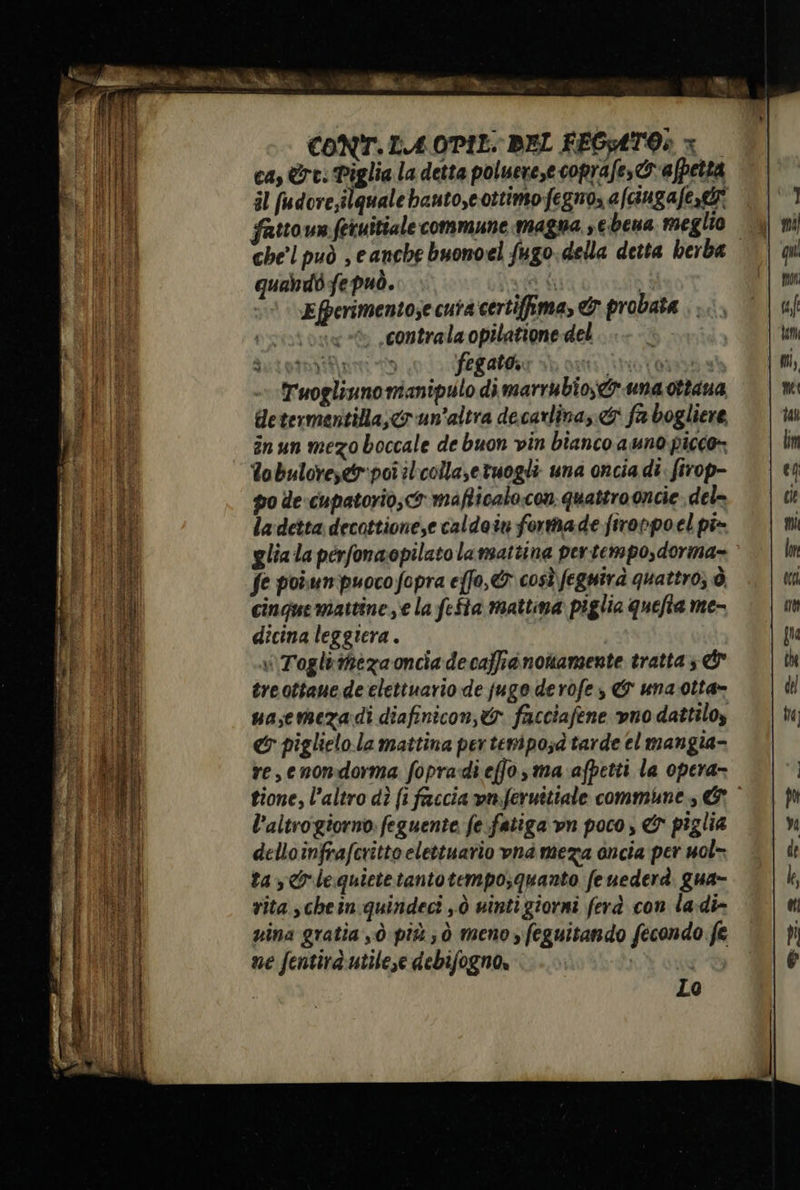 CONT. LA OPIL. DEL FEGATO.
ca, &c. Piglia la detta poluere, e coprase, & aspetta
il sudore, ilquale hauto, e ottimo segno, asciugase, &
fatto un seruitiale commune magna, e beua meglio
che'l può, e anche buono el sugo della detta herba
quando se può.
Esperimento, e cura certissima, & probata
contra la opilatione del
fegato.
Tuogli uno manipulo di marrubio, & una ottaua
de termentilla, & un'altra de carlina, & fa bogliere
in un mezo boccale de buon vin bianco a uno picco-
lo bulore, & poi il colla, e tuogli una oncia di sirop-
po de cupatorio, & masticalo con quattro oncie del-
la detta decottione, e caldo in forma de siroppo el pi-
glia la persona opilato la mattina per tempo, dorma-
se poi un puoco sopra esso, & così seguirà quattro, ò
cinque mattine, e la sesta mattina piglia questa me-
dicina leggiera.
Togli meza oncia de cassia nouamente tratta, &
tre ottaue de elettuario de sugo de rose, & una otta-
ua, e meza di diafinicon, & facciasene vno dattilo,
& piglielo la mattina per tempo, à tarde el mangia-
re, e non dorma sopra di esso, ma aspetti la opera-
tione, l'altro dì si faccia vn seruitiale commune, &
l'altro giorno seguente se fatiga vn poco, & piglia
dello infrascritto elettuario vna meza oncia per uol-
ta, & le quiete tanto tempo, quanto se uederà gua-
rita, che in quindeci, ò uinti giorni serà con la di-
uina gratia, ò più, ò meno, seguitando secondo se
ne sentirà utile, e debisogno.
Lo